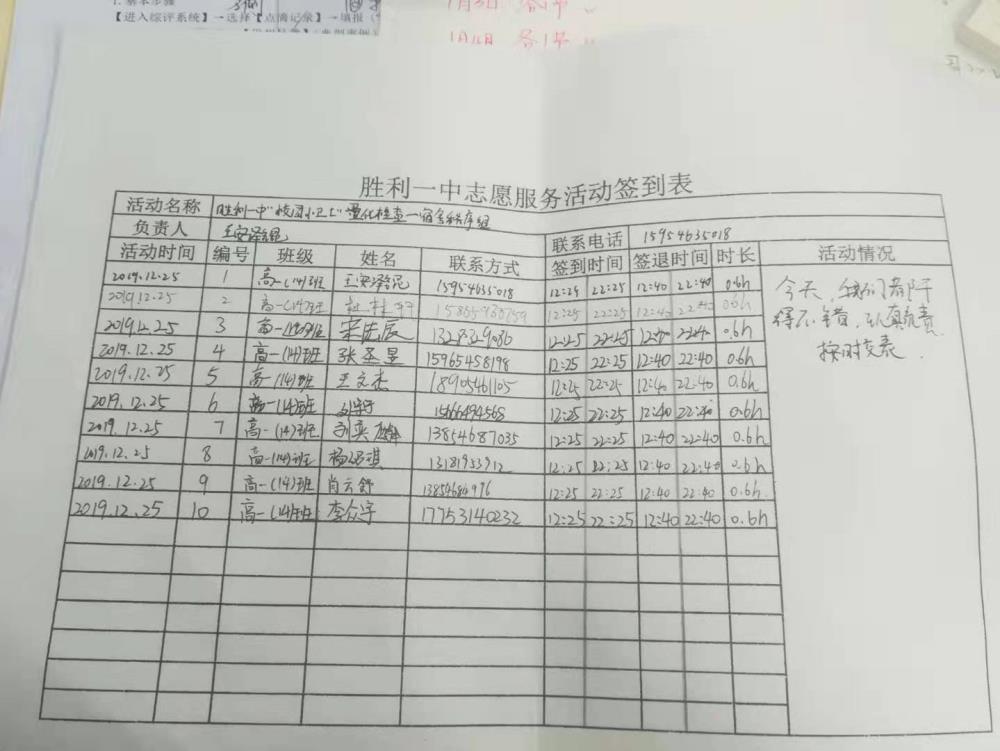 1. 基本步骤
【进入综评系统】→选择【点滴记录】→填报
胜利一中志愿服务活动签到表
活动名称 胜利一中"校园小卫士"量化检查—宿舍秩序组
负责人 王安泽锟 联系电话 15954635018
活动时间 编号 班级 姓名 联系方式 签到时间 签退时间 时长 活动情况
2019.12.25 1 高一(14)班 王安泽锟 15954635018 12:25 22:25 12:40 22:40 0.6h
2019.12.25 2 高一(14)班 12:25 22:25 12:40 22:40 0.6h
2019.12.25 3 高一(14)班 12:25 22:25 12:40 22:40 0.6h
2019.12.25 4 高一(14)班 张圣昱 15965458198 12:25 22:25 12:40 22:40 0.6h
2019.12.25 5 高一(14)班 王文杰 18905461105 12:25 22:25 12:40 22:40 0.6h
2019.12.25 6 高一(14)班 15666494568 12:25 22:25 12:40 22:40 0.6h
2019.12.25 7 高一(14)班 13854687035 12:25 22:25 12:40 22:40 0.6h
2019.12.25 8 高一(14)班 13181953912 12:25 22:25 12:40 22:40 0.6h
2019.12.25 9 高一(14)班 肖云舒 12:25 22:25 12:40 22:40 0.6h
2019.12.25 10 高一(14)班 李众宇 17753140232 12:25 22:25 12:40 22:40 0.6h
今天,我们都干
得不错,认真负责
按时交表.